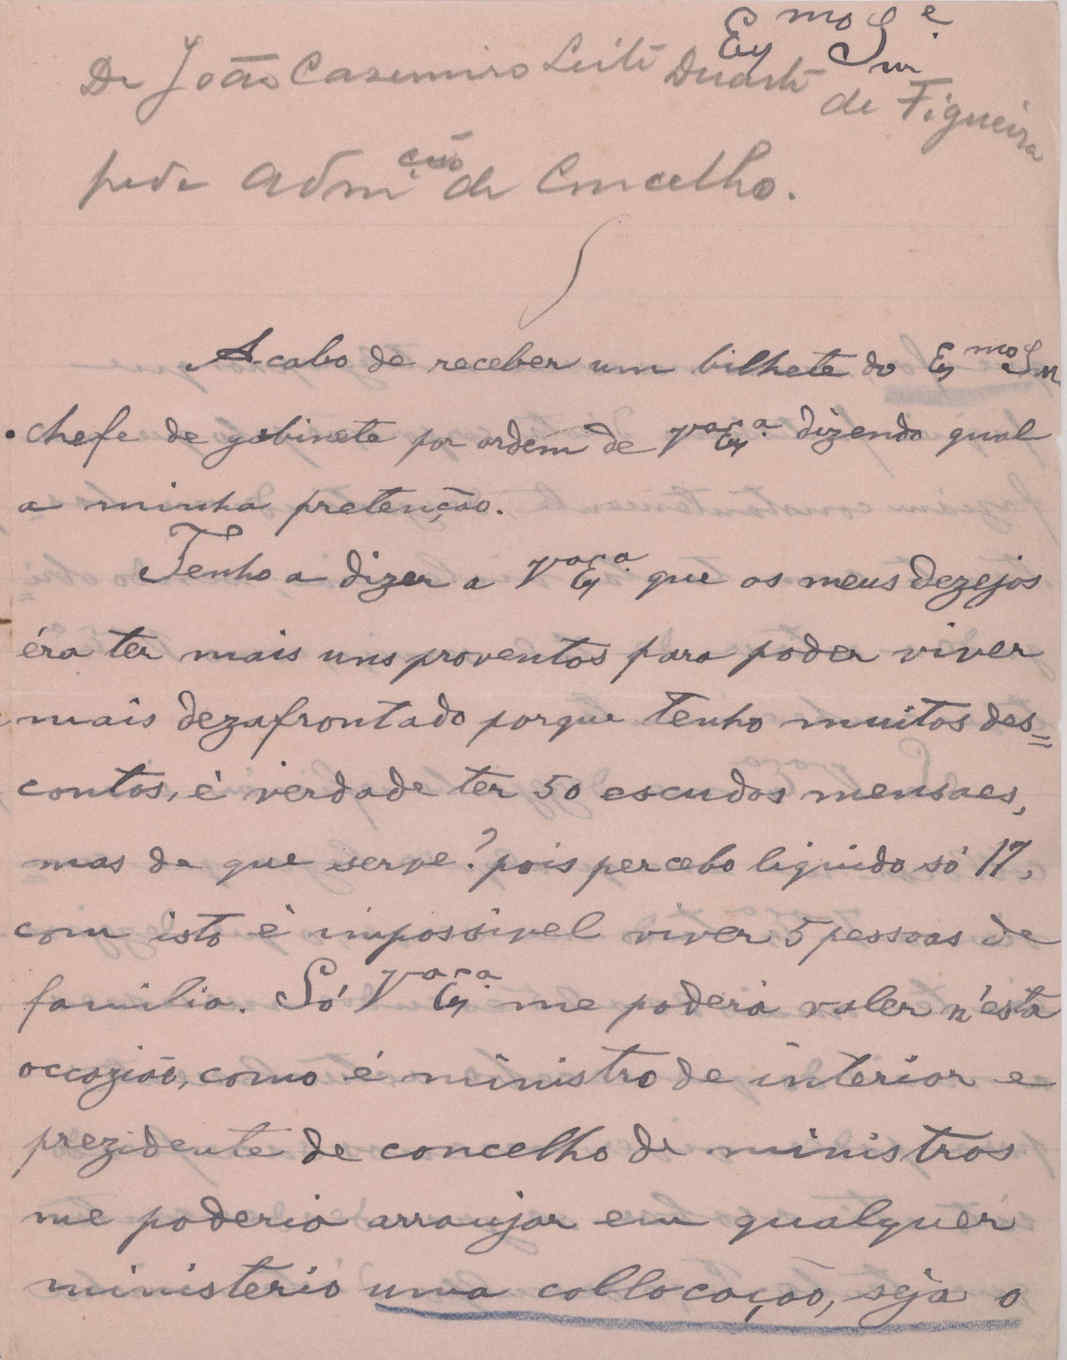 Exmo Snr.
Dr João Casemiro Leite Duarte de Figueira
pede Admção de Concelho.
Acabo de receber um bilhete do Exmo Snr
chefe de gabinete por ordem de Va Exa. dizendo qual
a minha pretenção.
Tenho a dizer a Va Exa. que os meus dezejos
éra ter mais uns proventos para poder viver
mais dezafrontado porque tenho muitos des=
contos, é verdade ter 50 escudos mensaes,
mas de que serve? pois percebo liquido só 17,
com isto é impossivel viver 5 pessoas de
familia. Só Va Exa. me poderá valer n'esta
occazião, como é ministro de interior e
prezidente de concelho de ministros
me poderia arranjar em qualquer
ministerio uma collocação, seja o